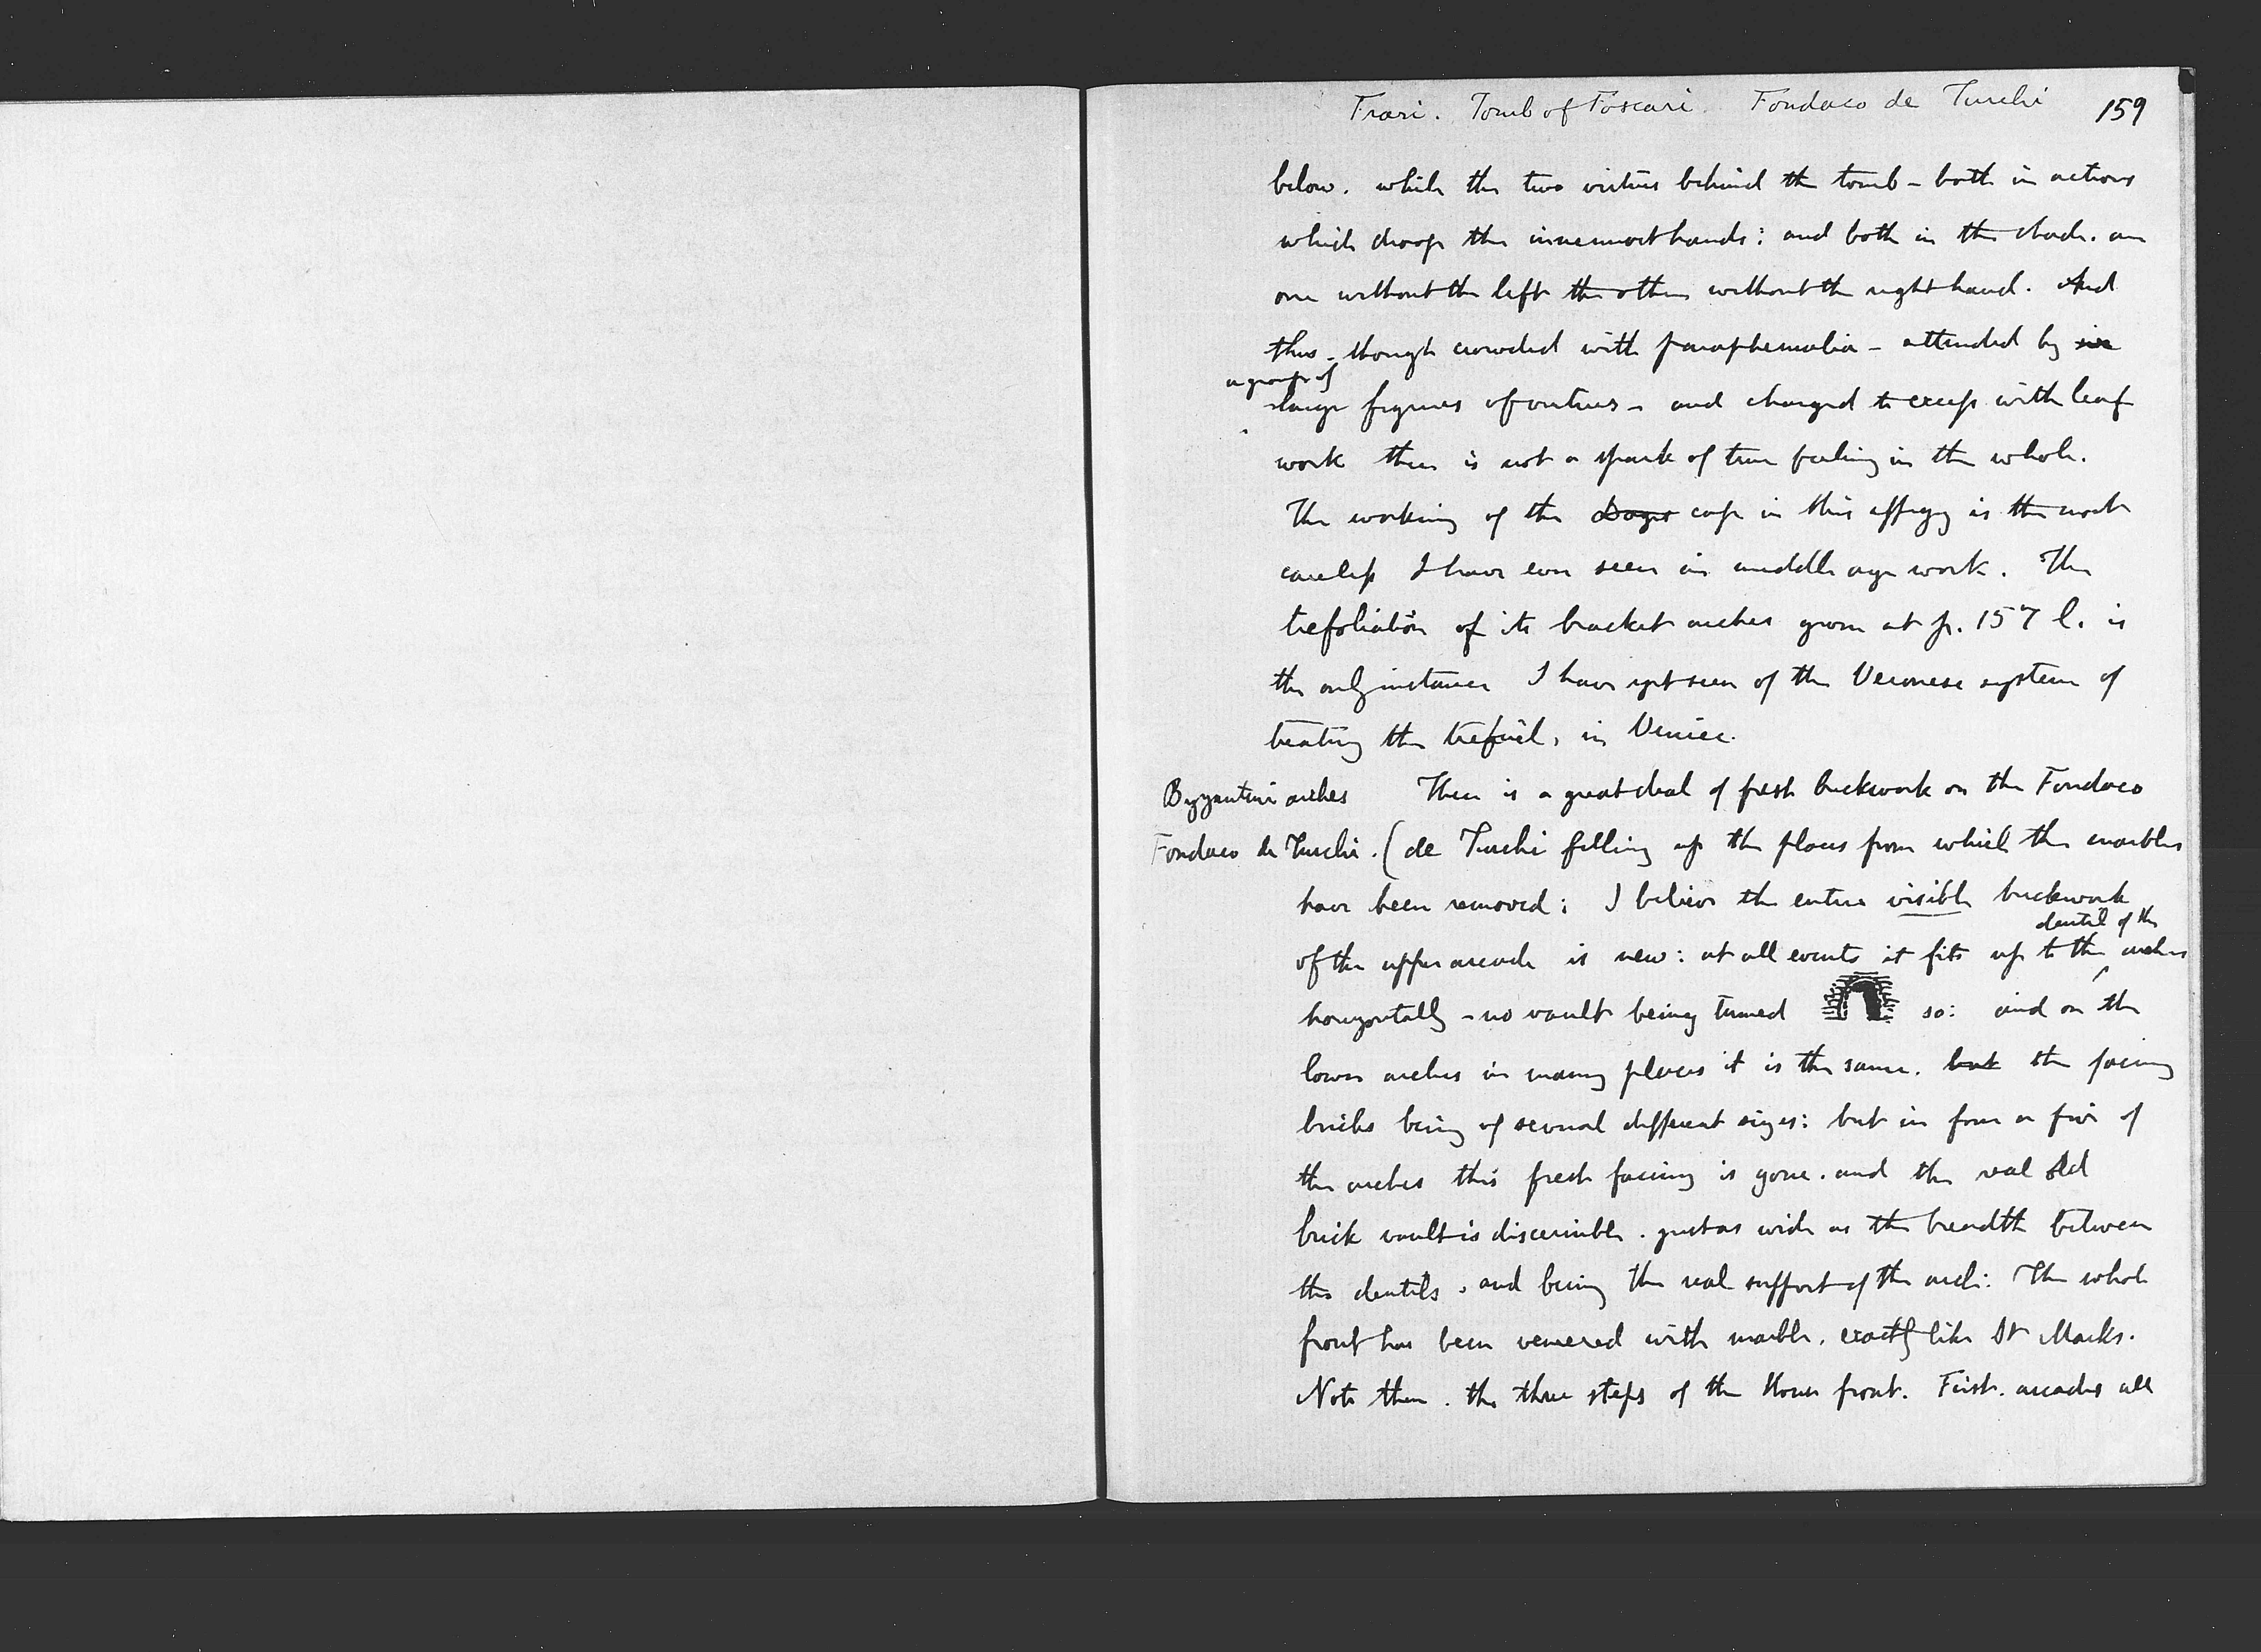 Frari. Tomb of Foscari. Fondaco de Turchi 159
below. while the two virtues behind the tomb - both in actions
which droop the innermost hands: and both in the shade. are
one without the left the other without the right hand. And
thus - though crowded with paraphernalia - attended by six
a group of
large figures of virtues - and charged to excess with leaf
work there is not a spark of true feeling in the whole.
The working of the Doges cap in this effigy is the most
careless I have ever seen in middle age work. The
trefoliation of its bracket arches given at p. 157 l. is
the only instance I have yet seen of the Veronese system of
treating the trefoil, in Venice.
Byzantine arches There is a great deal of fresh brickwork on the Fondaco
Fondaco de Turchi. (de Turchi filling up the places from which the marbles
have been removed: I believe the entire visible brickwork
dentil of the
of the upper arcade is new: at all events it fits up to the arches
horizontally - no vault being turned so: and on the
lower arches in many places it is the same. but the facing
bricks being of several different sizes: but in four or five of
the arches this fresh facing is gone. and the real old
brick vault is discernible. just as wide as the breadth between
the dentils, and being the real support of the arch: The whole
front has been veneered with marble, exactly like St Marks.
Note then. the three steps of the House front. First. arcades all